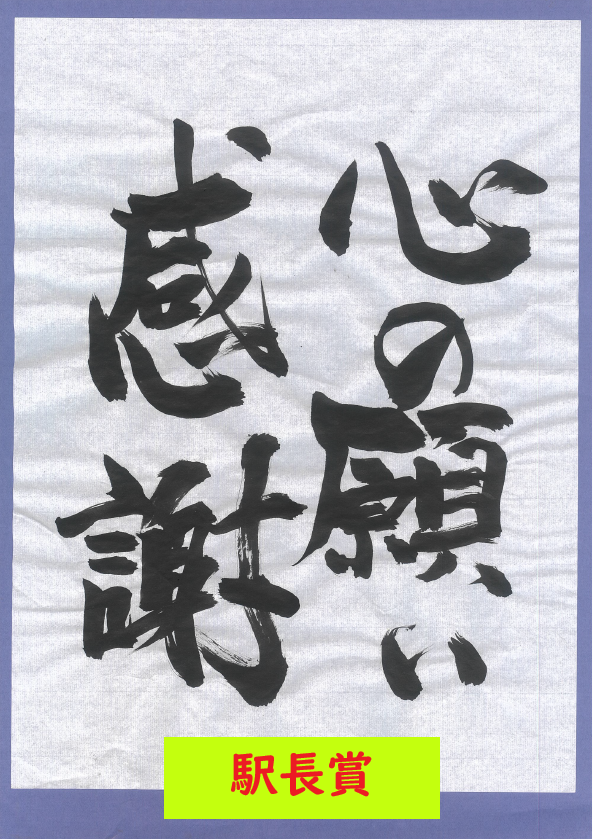 心の願い
感謝
駅長賞